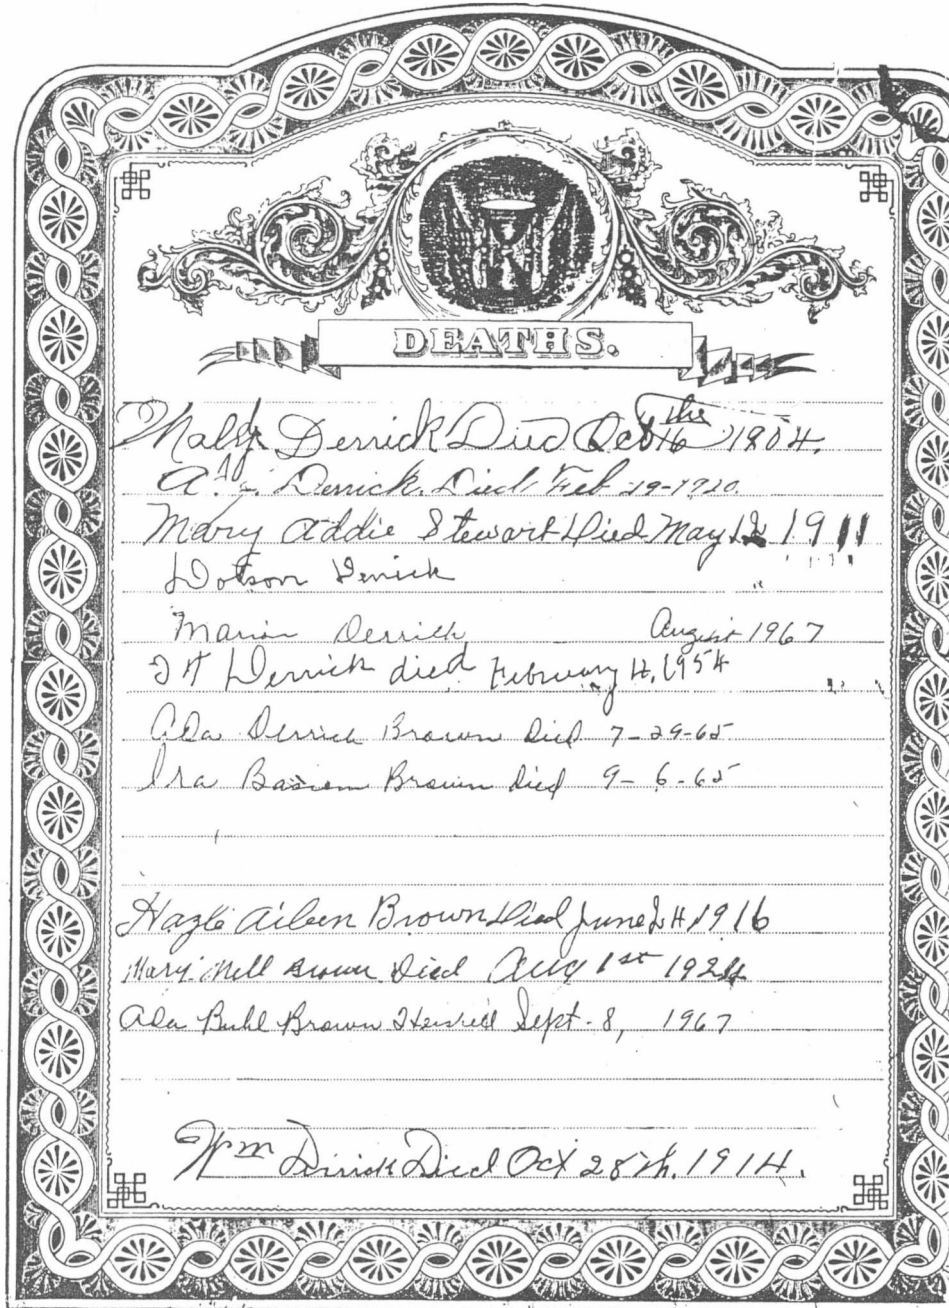 DEATHS.
Derrick Died Oct 16 the 1804.
A. J. Derrick. Died Feb 19-1920.
Mary Addie Stewart Died May 12 1911
Dotson Derrick
Marion Derrick August 1967
Derrick died February 4, 1954
Ada Derrick Brown Died 7-29-65
Ira Brown Died 9-6-65
Hazle Aileen Brown Died June 24 1916
Mary Nell Brown Died Aug 1st 1924
Ada Buhl Brown Sept. 8, 1967
Wm Derrick Died Oct 28th. 1914.